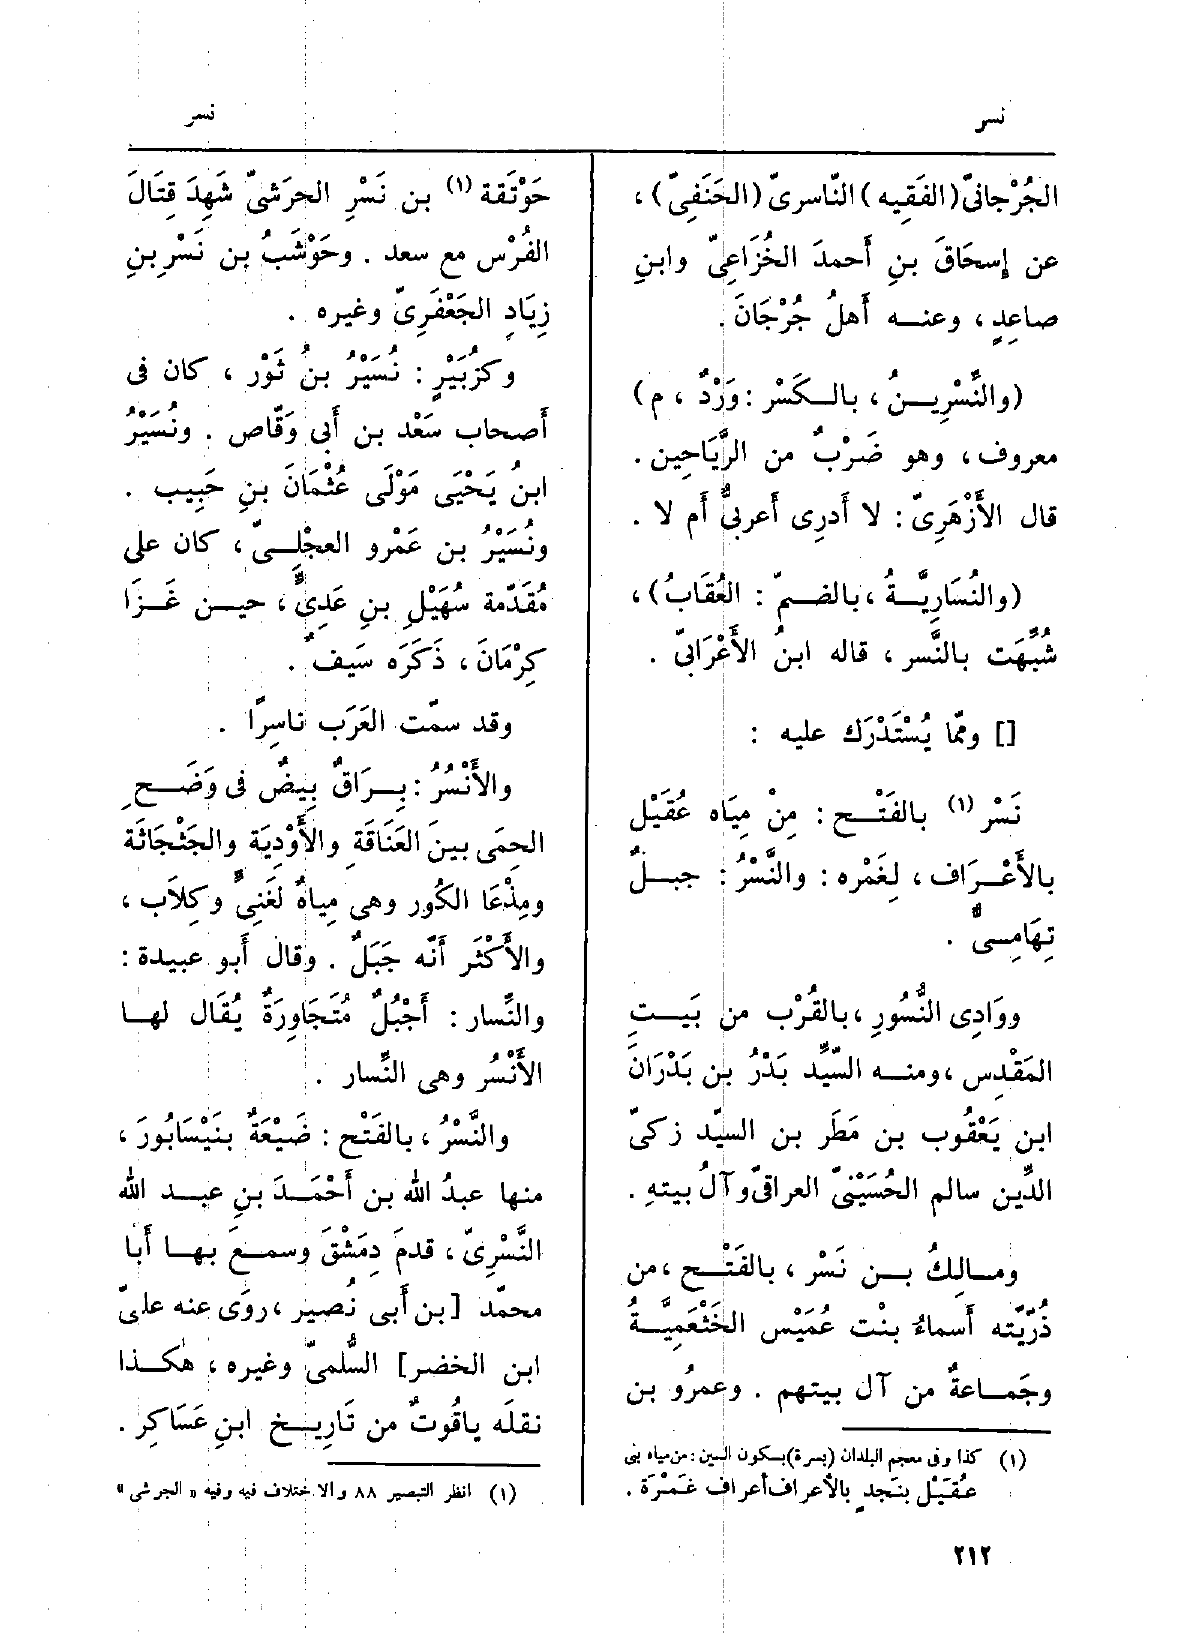 نسر
نسر
الجُرْجانىّ (الفَقِيه) النّاسرىّ (الحَنَفِىّ)،
عن إسحَاقَ بنِ أَحمدَ الخُزَاعِىّ وابنِ
صاعِدٍ، وعنه أَهلُ جُرْجَانَ.
(والنَّسْرِينُ، بالكَسْر: وَرْدٌ، م)
معروف، وهو ضَرْبٌ من الرَّيَاحِين.
قال الأَزْهَرِىّ: لا أَدرى أَعربىٌّ أَم لا.
(والنُّسَارِيَّةُ، بالضمّ: العُقَابُ)،
شُبِّهَت بالنَّسر، قاله ابنُ الأَعْرَابىّ.
[] وممّا يُسْتَدْرَك عليه:
نَسْر (١) بالفَتْح: مِنْ مِيَاه عُقَيْل
بالأَعْرَاف، لِغَمْره: والنَّسْرُ: جبلٌ
تِهَامِىٌّ.
ووَادِى النُّسُورِ، بالقُرْب من بَيْتِ
المَقْدِس، ومنه السَّيِّد بَدْرُ بن بَدْرَانَ
ابن يَعْقُوب بن مَطَر بن السيّد زكىّ
الدِّين سالم الحُسَيْنىّ العراقىّ وآلُ بيتهِ.
ومالِكُ بن نَسْر، بالفَتْح، من
ذُرّيّته أَسماءُ بنْت عُمَيْس الخَثْعَمِيَّةُ
وجَماعةٌ من آل بيتهم. وعمرو بن
(١) كذا وفى معجم البلدان (بسرة) بسكون السين: من مياه بنى
عقَيْل بنَجد بالأعراف أعراف غَمْرَة.
حَوْثَقة (١) بن نَسْرِ الحرَشىّ شَهِدَ قِتَالَ
الفُرْس مع سعد. وحَوْشَبُ بن نَسْرِ بنِ
زِيَادٍ الجَعْفَرِىّ وغيره.
وكزُبَيْرٍ: نُسَيْرُ بنُ ثَوْر، كان فى
أَصحاب سَعْد بن أَبى وَقّاص. ونُسَيْرُ
ابنُ يَحْيَى مَوْلَى عُثْمَانَ بنِ حَبِيب.
ونُسَيْرُ بن عَمْرو العجْلِىّ، كان على
مُقَدّمة سُهَيْلِ بنِ عَدِىٍّ، حين غَزَا
كِرْمَانَ، ذَكَرَه سَيفٌ.
وقد سمّت العَرَب ناسِرًا.
والأَنْسُرُ: بِرَاقٌ بِيضٌ فى وَضَحِ
الحِمَى بينَ العَنَاقَةِ والأَوْدِيَة والجَثْجَاثَة
ومِذْعَا الكُور وهى مِياهٌ لغَنِىٍّ وكِلَاب،
والأَكْثَر أَنّه جَبَلٌ. وقال أَبو عبيدة:
والنَّسار: أَجْبُلٌ مُتَجَاوِرَةٌ يُقَال لها
الأَنْسُر وهى النَّسار.
والنَّسْرُ، بالفَتْح: ضَيْعَةٌ بنَيْسَابُورَ،
منها عبدُ الله بن أَحْمَدَ بنِ عبد الله
النَّسْرِىّ، قدمَ دِمَشْقَ وسمعَ بها أَبا
محمّد [بن أَبى نُصير، روَى عنه علىّ
ابن الخضر] السُّلمىّ وغيره، هكذا
نقلَه ياقُوتٌ من تَارِيخ ابنِ عَسَاكِر.
(١) انظر التبصير ٨٨ والاختلاف فيه وفيه «الجرشى»
٢١٢